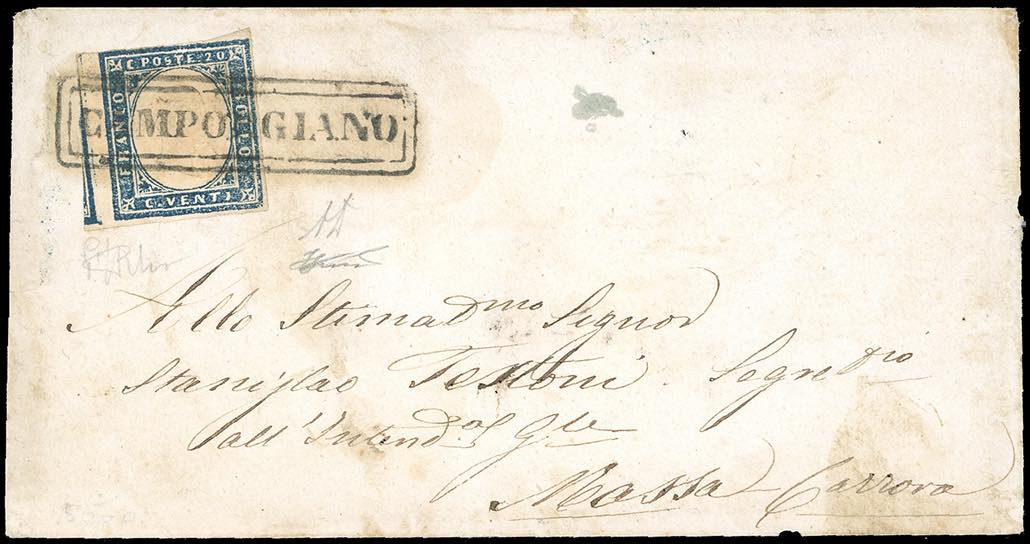 C. POSTE. 20
FRANCO
BOLLO
C. VENTI
CAMPORGIANO
Allo Stimad.mo Signor
Stanislao Testoni Segret.rio
all'Intend.a Gle
Massa Carrara